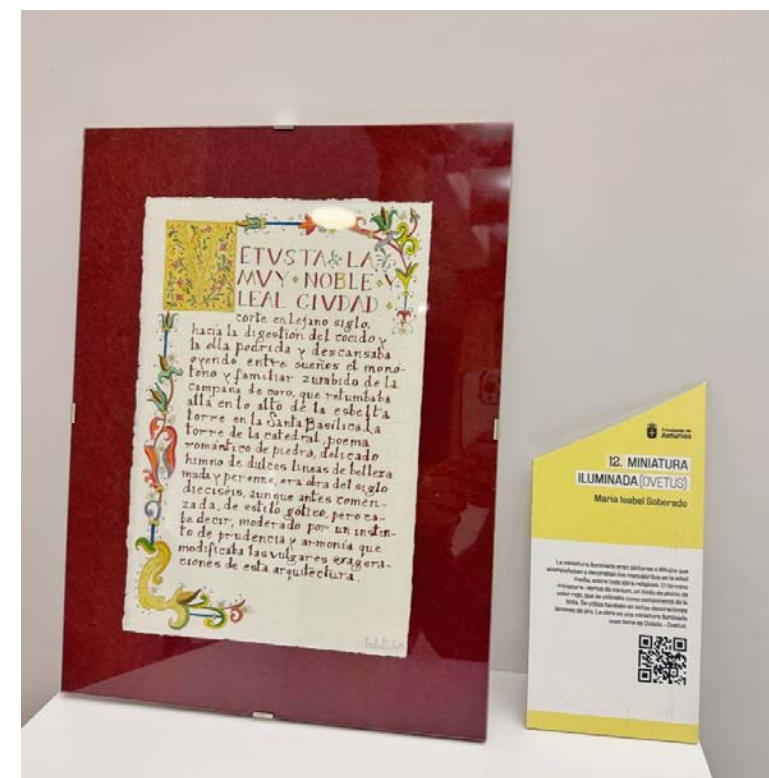 VETVSTA LA
MVY NOBLE Y
LEAL CIVDAD
corte en lejano siglo,
hacía la digestión del cocido y
la olla podrida y descansaba
oyendo entre sueños el monó-
tono y familiar zumbido de la
campana de coro, que retumbaba
allá en lo alto de la esbelta
torre en la Santa Basílica. La
torre de la catedral, poema
romántico de piedra, delicado
himno de dulces líneas de belleza
muda y perenne, era obra del siglo
dieciséis, aunque antes comen-
zada, de estilo gótico, pero ca-
be decir, moderado por un instin-
to de prudencia y armonía que
modificaba las vulgares exagera-
ciones de esta arquitectura.
Principado de
Asturias
12. MINIATURA
ILUMINADA (OVETUS)
María Isabel Soberado
La miniatura iluminada eran pinturas o dibujos que
acompañaban o decoraban los manuscritos en la edad
media, sobre todo obra religiosa. El término
-miniatura- deriva de minium, un óxido de plomo de
color rojo, que se utilizaba como componente de la
tinta. Se utiliza también en estas decoraciones
láminas de oro. La obra es una miniatura iluminada
cuyo tema es Oviedo - Ovetus.